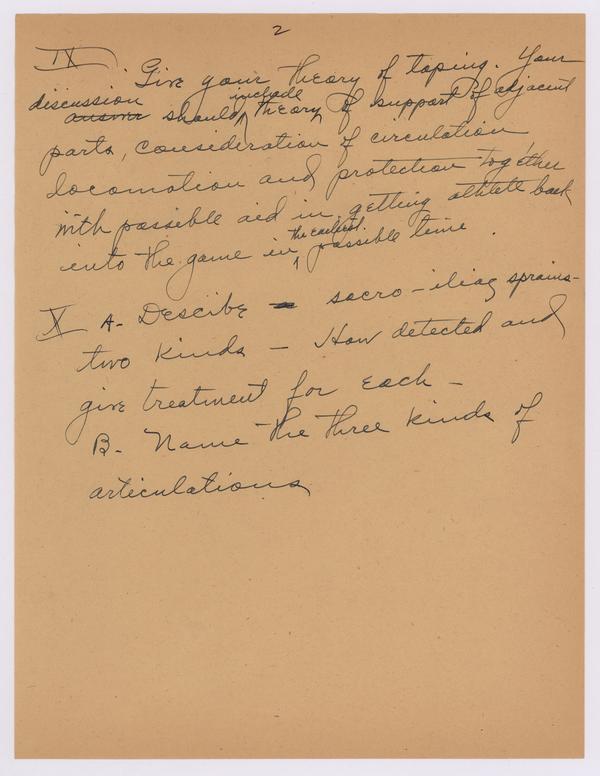 2
IX Give your theory of taping. Your
discussion answer should include theory of support of adjacent
parts, consideration of circulation
locomotion and protection together
with possible aid in getting athlete back
into the game in the earliest possible time.
X A- Descibe sacro-iliac sprains-
two kinds - How detected and
give treatment for each -
B- Name the three kinds of
articulations